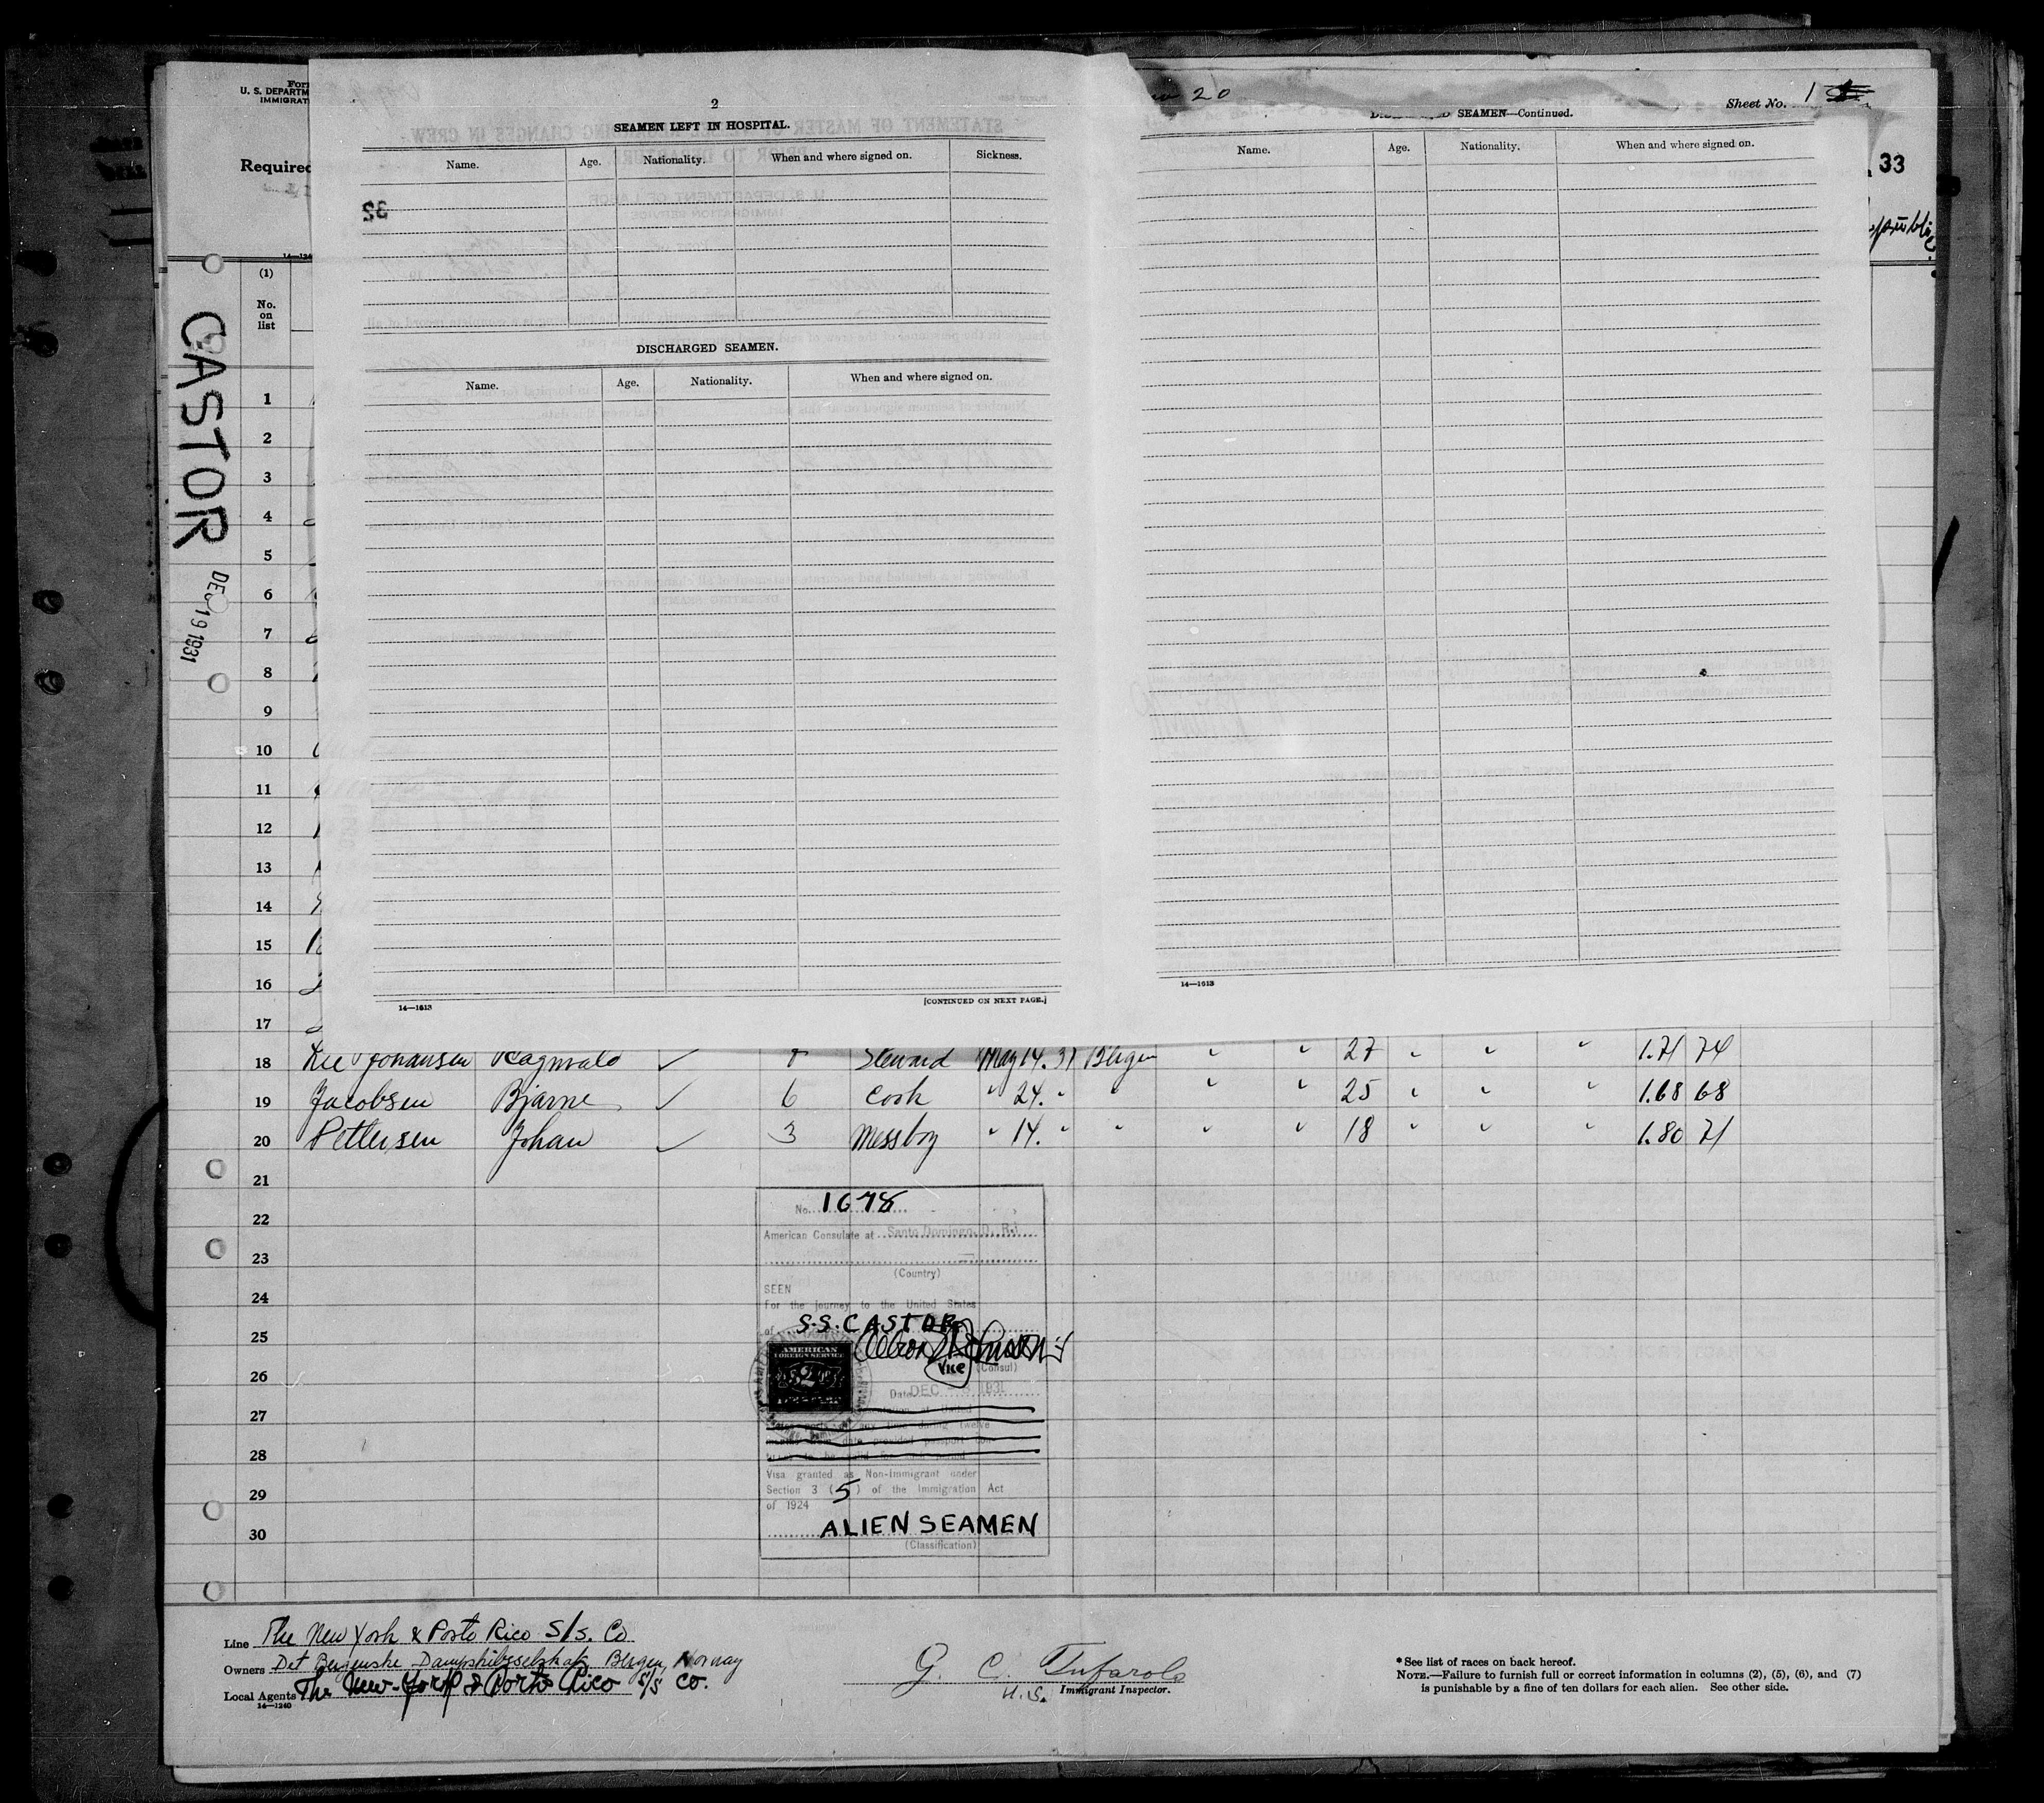 Form
U. S. DEPARTM
IMMIGRAT
Required
20
Sheet No. 1
33
CASTOR
DEC 19 1931
2
SEAMEN LEFT IN HOSPITAL.
Name. Age. Nationality. When and where signed on. Sickness.
32
DISCHARGED SEAMEN.
Name. Age. Nationality. When and where signed on.
14—1613
[CONTINUED ON NEXT PAGE.]
SEAMEN—Continued.
Name. Age. Nationality. When and where signed on.
14—1613
(1)
No.
on
list
1
2
3
4
5
6
7
8
9
10
11
12
13
14
15
16
17
18 Johansen Ragnvald ✓ 8 Steward May 14. 31 Bergen " " 27 " " " 1.71 74
19 Jacobsen Bjarne ✓ 6 Cook " 24. " " " " 25 " " " 1.68 68
20 Pettersen Johan ✓ 3 Messboy " 14. " " " " 18 " " " 1.80 71
21
22
23
24
25
26
27
28
29
30
No. 1678
American Consulate at Santo Domingo, D. R.
(Country)
SEEN
For the journey to the United States
of S.S. CASTOR
AMERICAN
FOREIGN SERVICE
$2
Vice (Consul)
Date DEC 1931
Visa granted as Non-Immigrant under
Section 3 (5) of the Immigration Act
of 1924
ALIEN SEAMEN
(Classification)
Line The New York & Porto Rico S/s. Co
Owners Det Bergenske Dampskibsselskab, Bergen, Norway
Local Agents The New-York & Porto Rico S/S Co.
14—1240
G. C. Tufarolo
U.S. Immigrant Inspector.
* See list of races on back hereof.
NOTE.—Failure to furnish full or correct information in columns (2), (5), (6), and (7)
is punishable by a fine of ten dollars for each alien. See other side.